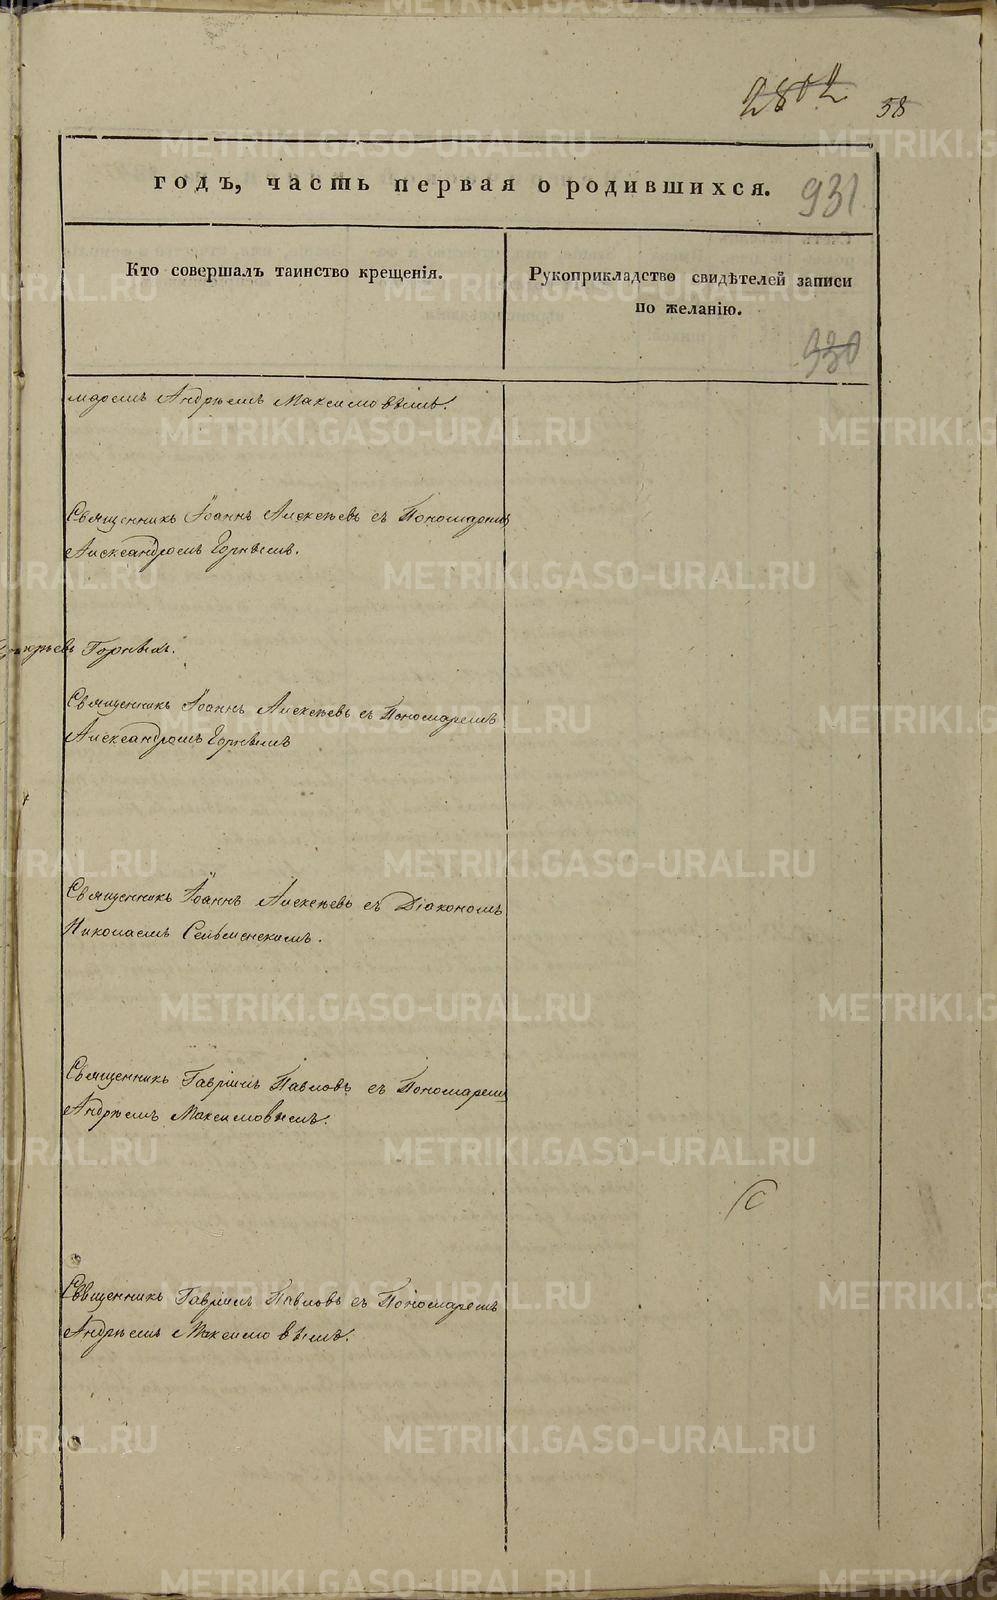 2802 58
годъ, часть первая о родившихся. 931
Кто совершалъ таинство крещенія.
Рукоприкладство свидѣтелей записи
по желанію.
930
маремъ Андрѣемъ Максимовымъ.
Священникъ Іоаннъ Алексѣевъ съ Пономаремъ
Александромъ Горнымъ.
Горныхъ.
Священникъ Іоаннъ Алексѣевъ съ Пономаремъ
Александромъ Горнымъ
Священникъ Іоаннъ Алексѣевъ съ Діакономъ
Николаемъ Сельменскимъ.
Священникъ Гавріилъ Павловъ съ Пономаремъ
Андрѣемъ Максимовымъ.
С
Священникъ Гавріилъ Павловъ съ Пономаремъ
Андрѣемъ Максимовымъ.
METRIKI.GASO-URAL.RU